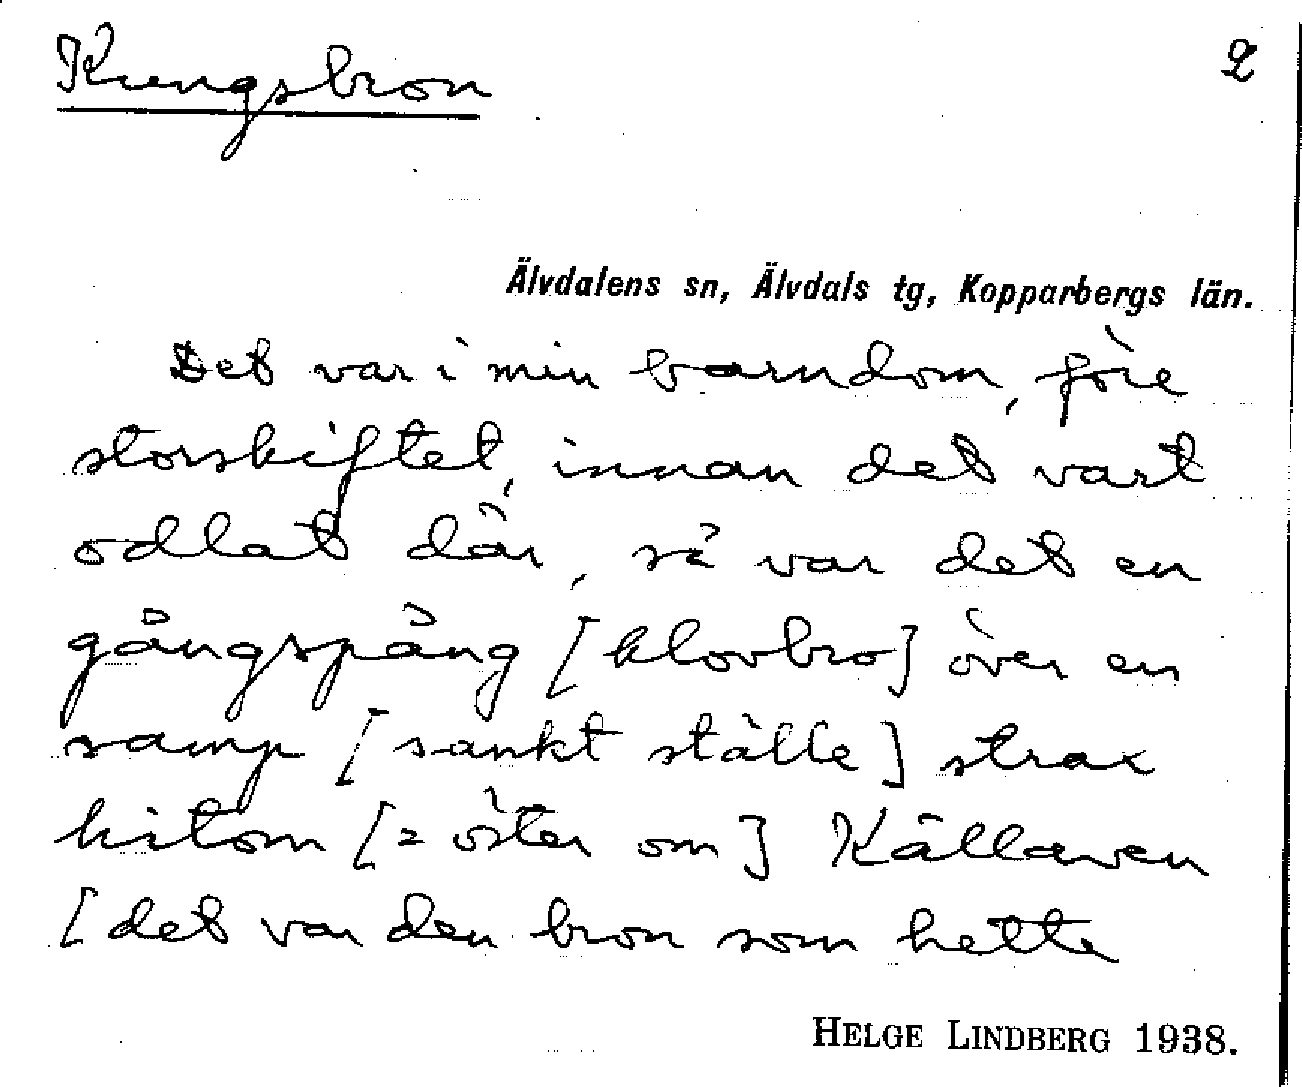 Kungsbron 2
Älvdalens sn, Älvdals tg, Kopparbergs län.
Det var i min barndom, före
storskiftet, innan det vart
odlat där, så var det en
gångspång [klovbro] över en
samp [sankt ställe] strax
hitom [= öster om] Källaven
[det var den bron som hette
HELGE LINDBERG 1938.